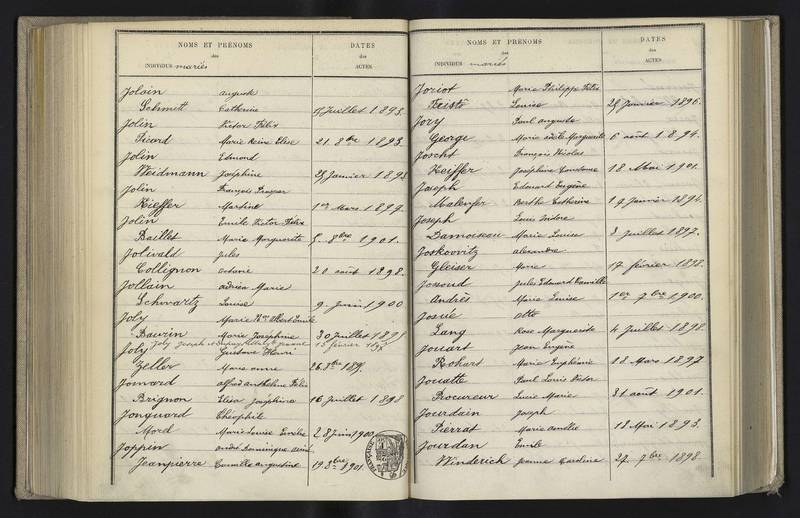 NOMS ET PRÉNOMS
des
INDIVIDUS mariés
DATES
des
ACTES
Jolain Auguste
Schmitt Catherine Juillet 1893.
Jolin Victor Félix
Picard Marie Reine Elise 21. 8bre 1893
Jolin Edmond
Weidmann Joséphine Janvier 1898
Jolin François Prosper
Kieffer Martine 1er Mars 1899.
Jolin Emile Victor Félix
Baillet Marie Marguerite 5. 8bre 1901.
Jolivald Jules
Collignon Octavie 20 août 1898.
Jollain Adrien Marie
Schwartz Louise 9. Juin 1900
Joly Marie Albert Emile
Bauvin Marie Joséphine 30 Juillet 1895
Joly Joseph et 15 février 1897
Joly Gustave Henri
Zeller Marie Anne 26. 8bre 189
Jomard Alfred Anthelme Félix
Brignon Elisa Joséphine 16 Juillet 1898
Jonquard Théophile
Mord Marie Louise Emélie 28 Juin 1900
Joppin André Dominique
Jeanpierre Camille Augustine 19. 8bre 1901.
FRANÇAISE
NOMS ET PRÉNOMS
des
INDIVIDUS mariés
DATES
des
ACTES
Joriot Marie Philippe Félix
Louise 29 Janvier 1896.
Jory Paul Auguste
George Marie Adèle Marguerite 6 août 1894.
Joscht François Nicolas
Keiffer Joséphine 18 Mai 1901.
Joseph Edouard Eugène
Berthe Catherine 19 Janvier 1894.
Joseph Louis Isidore
Damoiseau Marie Louise 3 Juillet 1897.
Joskovitz Alexandre
Gleiser Marie 17 février 1898.
Jossoud Jules Edouard Camille
Andrès Marie Louise 1er 7bre 1900.
Josué Otto
Lang Rose Marguerite 4 Juillet 1898
Jouart Jean Eugène
Rohart Marie Euphémie 18 Mars 1897
Jouatte Paul Louis Victor
Procureur Lucie Marie 31 août 1901.
Jourdain Joseph
Pierrat Marie Amélie 18 Mai 1893.
Jourdan Emile
Winderich Jeanne Caroline 27. 7bre 1898